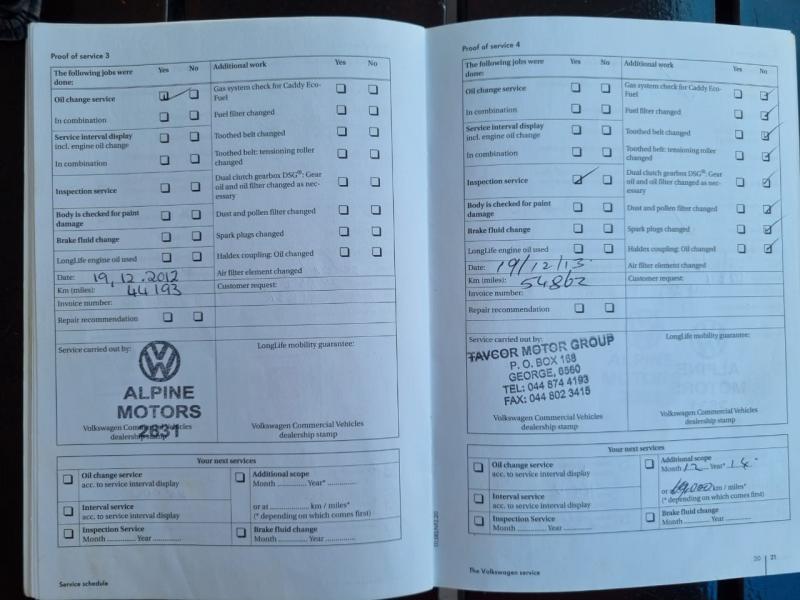 Proof of service 3
The following jobs were done: Yes No Additional work Yes No
Oil change service
Gas system check for Caddy Eco-Fuel
In combination
Fuel filter changed
Service interval display
incl. engine oil change
Toothed belt changed
In combination
Toothed belt: tensioning roller changed
Inspection service
Dual clutch gearbox DSG®: Gear oil and oil filter changed as necessary
Body is checked for paint damage
Dust and pollen filter changed
Brake fluid change
Spark plugs changed
LongLife engine oil used
Haldex coupling: Oil changed
Date: 19, 12. 2012
Air filter element changed
Km (miles): 44193
Customer request:
Invoice number:
Repair recommendation
Service carried out by:
LongLife mobility guarantee:
VW
ALPINE
MOTORS
2831
Volkswagen Commercial Vehicles
dealership stamp
Volkswagen Commercial Vehicles
dealership stamp
Your next services
Oil change service
acc. to service interval display
Additional scope
Month ............ Year* ............
Interval service
acc. to service interval display
or at .................. km / miles*
(* depending on which comes first)
Inspection Service
Month .......... Year ..........
Brake fluid change
Month .......... Year ..........
Service schedule
Proof of service 4
The following jobs were done: Yes No Additional work Yes No
Oil change service
Gas system check for Caddy Eco-Fuel
In combination
Fuel filter changed
Service interval display
incl. engine oil change
Toothed belt changed
In combination
Toothed belt: tensioning roller changed
Inspection service
Dual clutch gearbox DSG®: Gear oil and oil filter changed as necessary
Body is checked for paint damage
Dust and pollen filter changed
Brake fluid change
Spark plugs changed
LongLife engine oil used
Haldex coupling: Oil changed
Date: 19/12/13
Air filter element changed
Km (miles): 54862
Customer request:
Invoice number:
Repair recommendation
Service carried out by:
LongLife mobility guarantee:
TAVCOR MOTOR GROUP
P. O. BOX 168
GEORGE, 6560
TEL: 044 874 4193
FAX: 044 802 3415
Volkswagen Commercial Vehicles
dealership stamp
Volkswagen Commercial Vehicles
dealership stamp
Your next services
Oil change service
acc. to service interval display
Additional scope
Month 12 Year* 14
Interval service
acc. to service interval display
km / miles*
(* depending on which comes first)
Inspection Service
Month .......... Year ..........
Brake fluid change
Month .......... Year ..........
The Volkswagen service
20 | 21